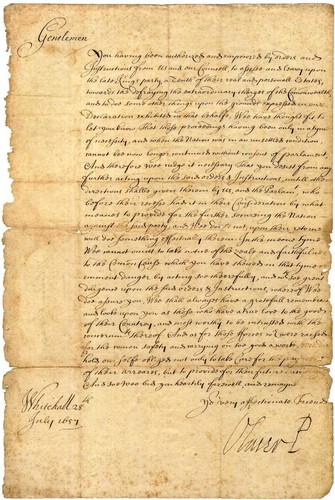 Gentlemen
You haveing been authorized and impowred by orders and
Instructions from Us and our Counsell to assesse and leavy upon
the late Kings party a Tenth of their reall and personall Estates
towards the defraying the extraordinary charges of the Commonwealth
and to doe some other things upon the grounds expressed in our
Declaration exhibited in that behalfe. Wee have thought fit to
let you know That those proceedings haveing been only in a tyme
of necessity, and when the Nation was in an unsetled condition
cannot bee now longer continued without consent of parliament.
And therefore wee Judge it necessary That you desist from any
further acting upon the said orders & Instructions, untill other
directions shalbe given therein by Us, and the Parliamt, who
before their recesse had it in their Consideration by what
meanes to provide for the further secureing the Nation
against the said party, and Wee doe not, upon their returne
will doe something effectually therein. In the meane tyme
Wee cannot omit to take notice of the zeale and faithfulnes
to the Common Cause which you have shewed in that tyme of
eminent danger by acting soe cheerefully, and with soe great
diligence upon the said orders & Instructions, whereof Wee
doe assure you, Wee shall always have a gratefull remembrance
and looke upon you as those who have true love to the good
of their Country, and most worthy to be intrusted with the
thereof. And as for those fforces wch were raised
for the comon safety and engageing in soe good a worke
hold our selfe obliged not only to take care for the paymt
of their arreares, but to provide for their future
And soe Wee bid you heartily farewell, and remayne
Whitehall 28th
July 1657
Yor very affectionate Friend
Oliver P